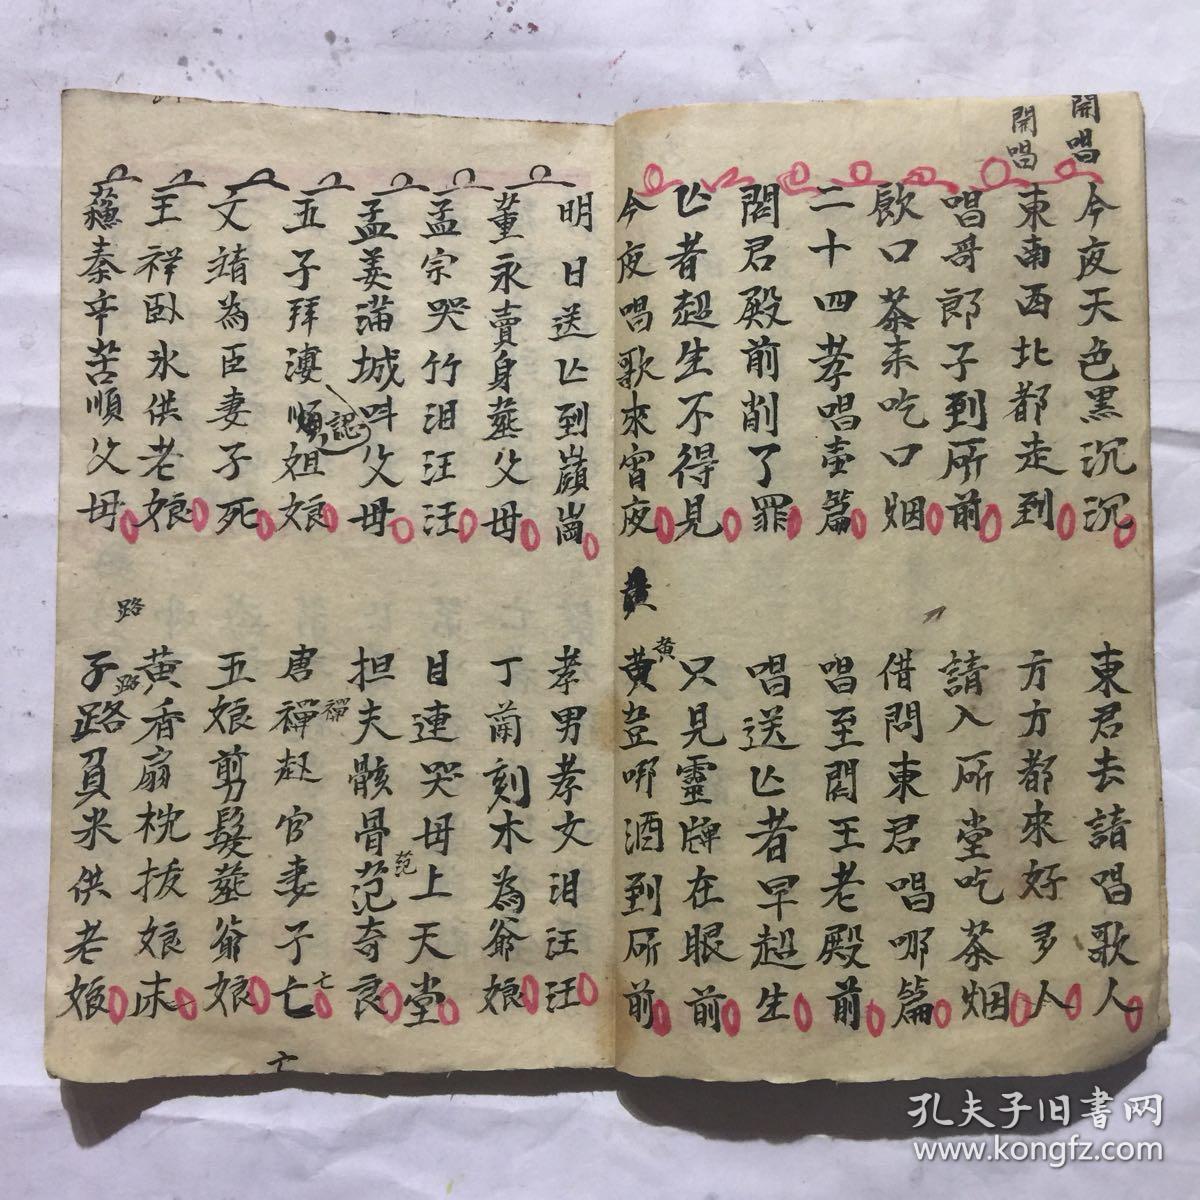 開唱
開唱
今夜天色黑沉沉
東君去請唱歌人
東南西北都走到
方方都來好多人
唱哥郎子到所前
請入所堂吃茶烟
飲口茶來吃口烟
借問東君唱哪篇
二十四孝唱壹篇
唱至閻王老殿前
閻君殿前削了罪
唱送亡者早超生
亡者超生不得見
只見靈牌在眼前
今夜唱歌來宵夜
黄
黄
黄荳哪酒到所前
明日送亡到嶺崗
孝男孝女泪汪汪
董永賣身塟父母
丁蘭刻木為爺娘
孟宗哭竹泪汪汪
目連哭母上天堂
孟姜滿城呌父母
担夫骸骨范奇良
范
五子拜淒順姐娘
認
唐禪赵官妻子亡
禪
亡
亡
文靖為臣妻子死
五娘剪髮塟爺娘
王祥臥氷供老娘
黄香扇枕拔娘床
蘓秦辛苦順父母
子路負米供老娘
路
路
孔夫子旧书网
www.kongfz.com